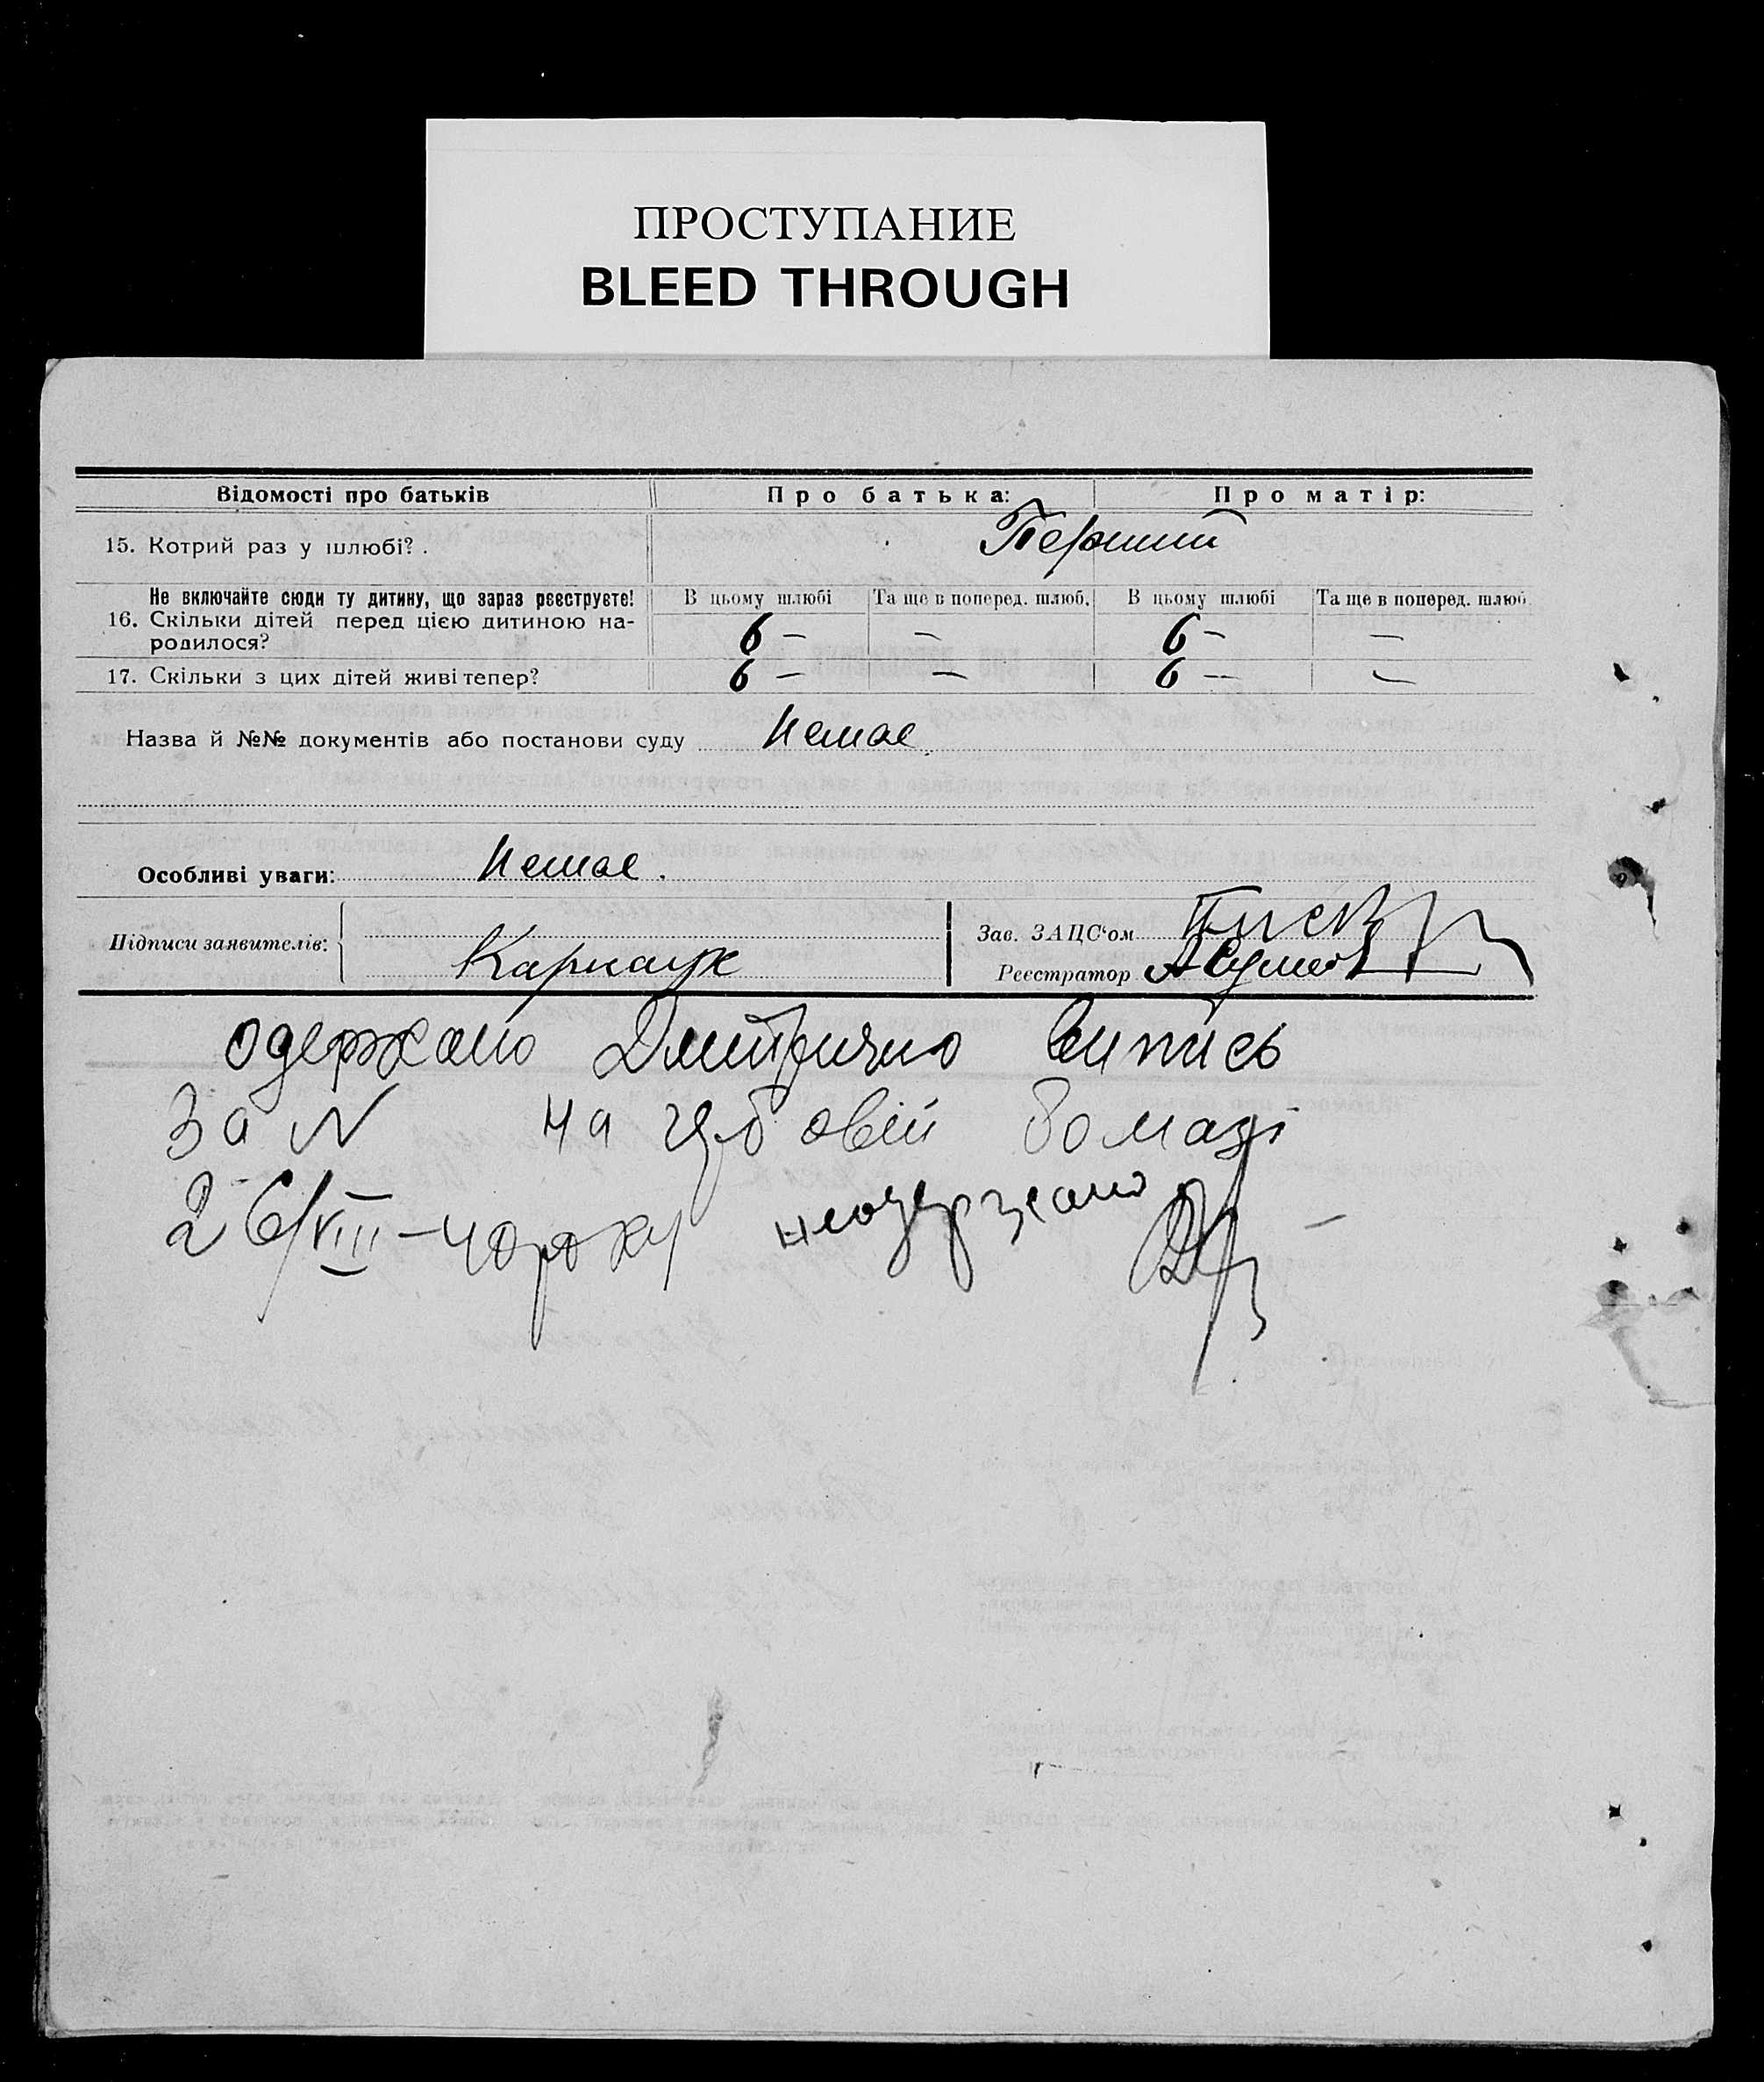 ПРОСТУПАНИЕ
BLEED THROUGH
Відомості про батьків Про батька: Про матір:
15. Котрий раз у шлюбі? . Перший
Не включайте сюди ту дитину, що зараз реєструєте! В цьому шлюбі Та ще в поперед. шлюб. В цьому шлюбі Та ще в поперед. шлюб.
16. Скільки дітей перед цією дитиною на-
родилося? 6 — — 6 — —
17. Скільки з цих дітей живі тепер? 6 — — 6 — —
Назва й №№ документів або постанови суду Немає
Особливі уваги: Немає.
Підписи заявителів: Карнаух
Зав. ЗАЦС‘ом
Реєстратор
одержано випись
за N на гербовій бомазі
26/VIII–40 року неодержано